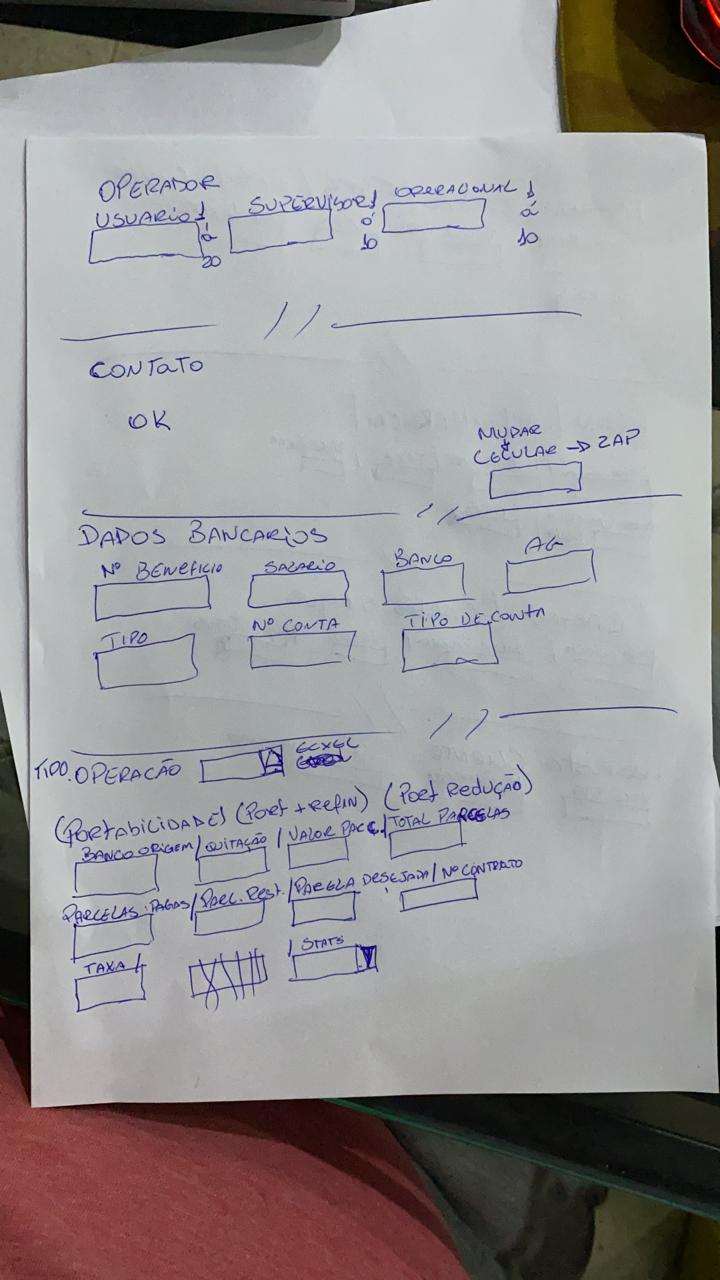 OPERADOR
USUARIO 1 à 20 SUPERVISOR 1 á 10 OPERACIONAL 1 á 10
CONTATO
OK
MUDAR
CELULAR → ZAP
DADOS BANCARIOS
Nº BENEFICIO SALARIO BANCO AG
TIPO Nº CONTA TIPO DE CONTA
TIPO. OPERACÃO
(PORTABILIDADE) (PORT + REFIN) (PORT REDUÇÃO)
BANCO ORIGEM / QUITAÇÃO / VALOR PARC. / TOTAL PARCELAS
PARCELAS PAGAS / PARC. REST. / PARCELA DESEJADA / Nº CONTRATO
TAXA / / STATS